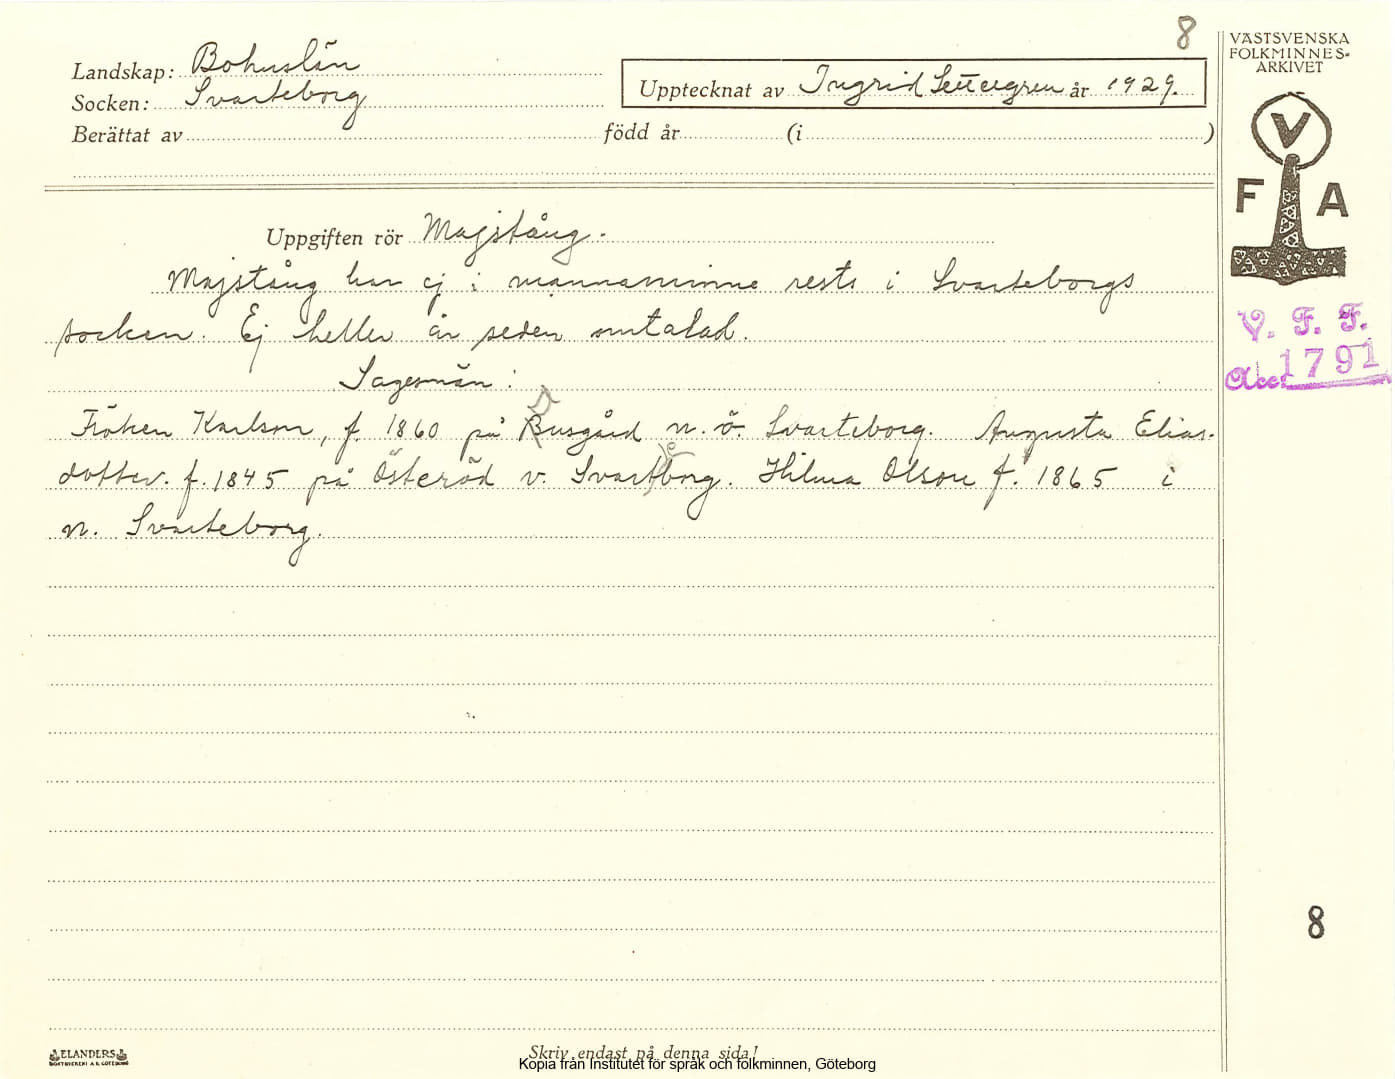 8
VÄSTSVENSKA
FOLKMINNES-
ARKIVET
Landskap: Bohuslän
Socken: Svarteborg
Upptecknat av Ingrid Settergren år 1929.
Berättat av född år (i )
V
F A
Uppgiften rör Majstång.
Majstång har ej i mannaminne rests i Svarteborgs
socken. Ej heller är seden omtalad.
V. F. F.
Acc. 1791
Sagesmän:
Fröken Karlson, f. 1860 på Busgård n. ö. Svarteborg. Augusta Elias-
dotter. f. 1845 på Österöd v. Svarteborg. Hilma Olson f. 1865 i
n. Svarteborg.
8
ELANDERS
BOKTRYCKERI A.B. GÖTEBORG
Skriv endast på denna sida!
Kopia från Institutet för språk och folkminnen, Göteborg